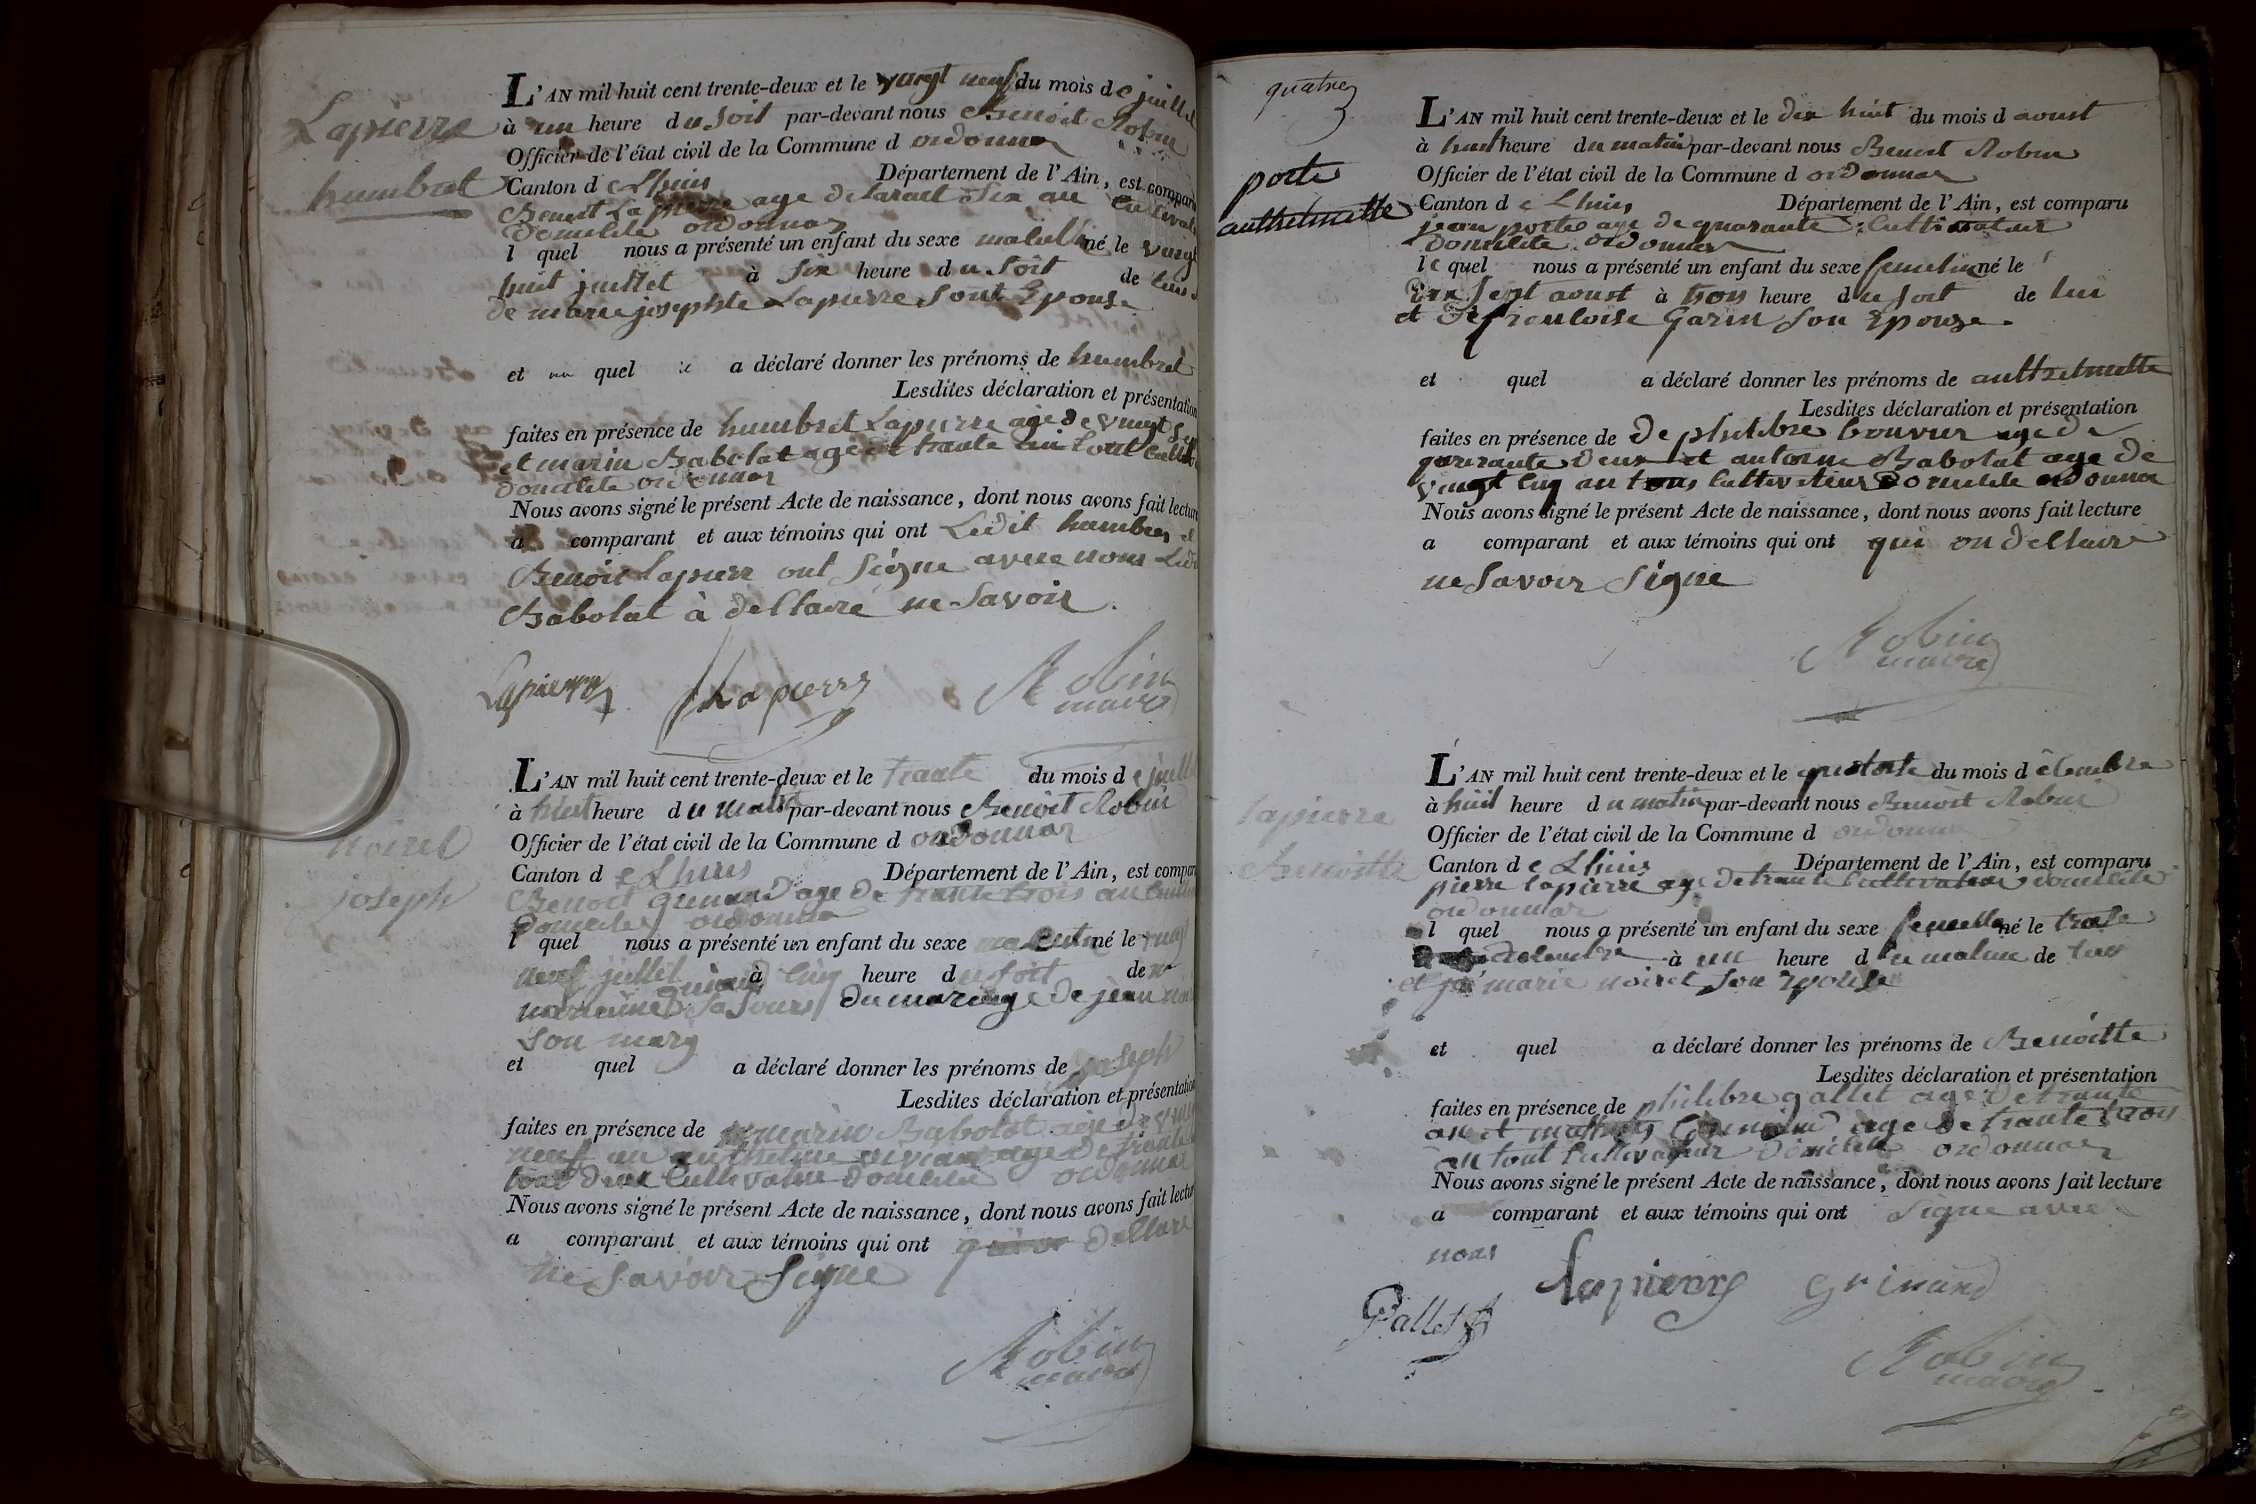 Lapierre
humbret
L'AN mil huit cent trente-deux et le vingt neuf du mois de juillet
à un heure du soit par-devant nous Benoit Robin
Officier de l'état civil de la Commune d ordonnas
Canton de Lhuis Département de l'Ain, est comparu
Benoit Lapierre age de Six an
domilile ordonnas
l quel nous a présenté un enfant du sexe né le vingt
huit juillet à Six heure du Soit de lui
de marie josephte Lapierre Sont Epouse
et quel a déclaré donner les prénoms de humbret
Lesdites déclaration et présentation
faites en présence de humbret Lapierre age de vingt
et marin Babolat age de trante an tout
domilile ordonnas
Nous avons signé le présent Acte de naissance, dont nous avons fait lecture
a comparant et aux témoins qui ont Ledit humbret et
Benoit Lapierre ont Signe avece nous Ledi
Babolat à dellaré ne Savoir
Lapierre Lapierre Robin
maire
noiret
joseph
L'AN mil huit cent trente-deux et le trante du mois de juillet
à huit heure du matin par-devant nous Benoit Robin
Officier de l'état civil de la Commune d ordonnas
Canton de Lhuis Département de l'Ain, est comparu
Benoit age de trante trois an
domilile ordonnas
l quel nous a présenté un enfant du sexe né le vingt
neuf juillet à Cinq heure du soit de
Sa Seurs du mariage de jean
Son mary
et quel a déclaré donner les prénoms de joseph
Lesdites déclaration et présentation
faites en présence de marin Babolat age de
neuf an anthelme age de trante
tout deux Cultivateur domilile ordonnas
Nous avons signé le présent Acte de naissance, dont nous avons fait lecture
a comparant et aux témoins qui ont dellare
ne Savoir Signe
Robin
maire
quatre
porte
anthelmette
L'AN mil huit cent trente-deux et le dix huit du mois d aoust
à huit heure du matin par-devant nous Benoit Robin
Officier de l'état civil de la Commune d ordonnas
Canton de Lhuis Département de l'Ain, est comparu
jean porte age de quarante Cultivateur
domilile ordonnas
le quel nous a présenté un enfant du sexe femelin né le
dix Sept aoust à trois heure du soit de lui
et De francloise Garin Son Epouse
et quel a déclaré donner les prénoms de anthelmette
Lesdites déclaration et présentation
faites en présence de De philibre bouvier age de
quarante deux et antoine Babolat age de
vingt Cinq an tous Cultivateur Domilile ordonnas
Nous avons signé le présent Acte de naissance, dont nous avons fait lecture
a comparant et aux témoins qui ont qui on dellaire
ne Savoir Signe
Robin
maire
lapierre
Benoitte
L'AN mil huit cent trente-deux et le quatorte du mois d
à huit heure du matin par-devant nous Benoit Robin
Officier de l'état civil de la Commune d ordonnas
Canton de Lhuis Département de l'Ain, est comparu
pierre lapierre age de trante Cultivateur domilile
ordonnas
l quel nous a présenté un enfant du sexe femelle né le
à un heure du matine de lui
et marie noiret Son Epouse
et quel a déclaré donner les prénoms de Benoitte
Lesdites déclaration et présentation
faites en présence de philibre gallet age De trante
an et age De trante trois
an tout Cultivateur Domilile ordonnas
Nous avons signé le présent Acte de naissance, dont nous avons fait lecture
a comparant et aux témoins qui ont Signe avec
nous
Gallet Lapierre Grinand
Robin
maire